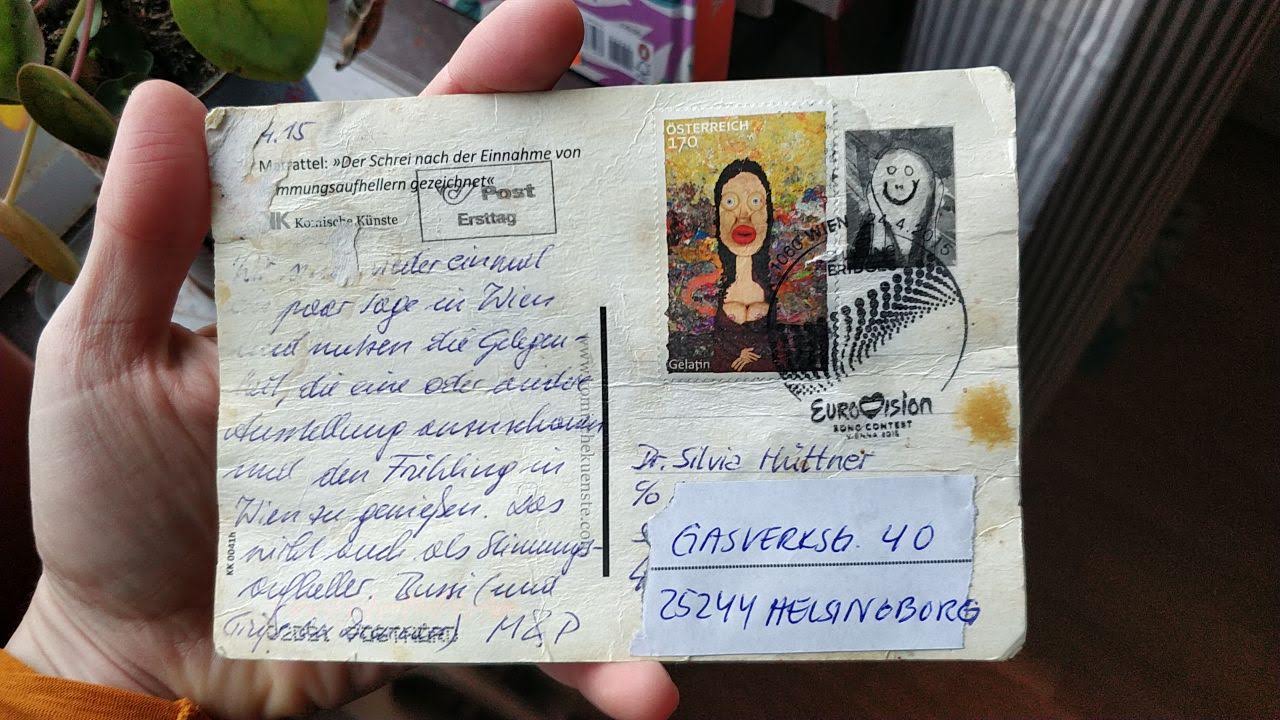 4.15
Martattel: »Der Schrei nach der Einnahme von
mmungsaufhellern gezeichnet«
K Komische Künste
Post
Ersttag
wieder einmal
paar Tage in Wien
und nutzen die Gelegen-
heit, die eine oder andere
Ausstellung anzuschauen
und den Frühling in
Wien zu genießen. Das
wirkt auch als Stimmungs-
aufheller. Bussi (und
M&P
KK 0041h
ÖSTERREICH
170
Gelatin
1060 WIEN 24.4.2015
EUROVISION
SONG CONTEST
VIENNA 2015
Dr. Silvia Hüttner
c/o
GASVERKSG. 40
25244 HELSINGBORG